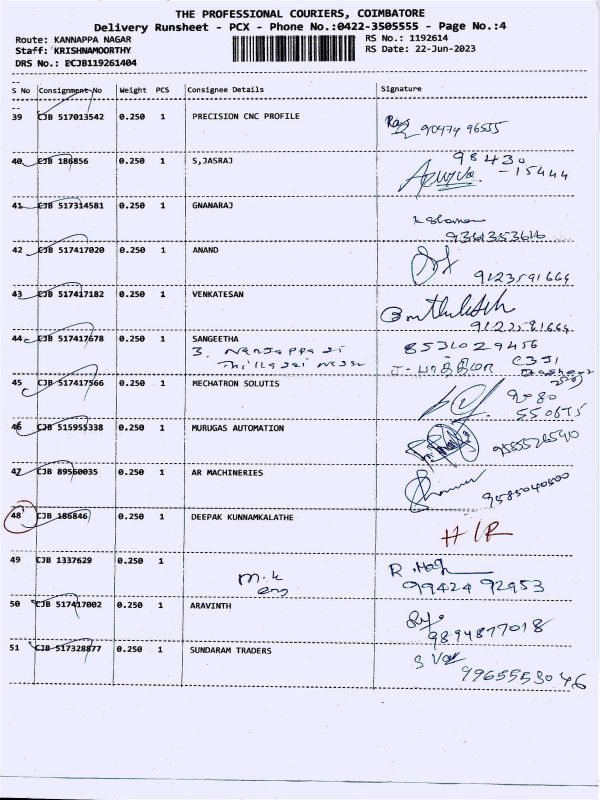 THE PROFESSIONAL COURIERS, COIMBATORE
Delivery Runsheet - PCX - Phone No.:0422-3505555 - Page No.:4
Route: KANNAPPA NAGAR RS No.: 1192614
Staff: KRISHNAMOORTHY RS Date: 22-Jun-2023
DRS No.: ECJB119261404
S No Consignment No Weight PCS Consignee Details Signature
39 CJB 517013542 0.250 1 PRECISION CNC PROFILE
90474 96555
40 CJB 186856 0.250 1 S,JASRAJ 98430
- 15444
41 CJB 517314581 0.250 1 GNANARAJ
9361353616
42 CJB 517417020 0.250 1 ANAND
9123591664
43 CJB 517417182 0.250 1 VENKATESAN
9123581664
44 CJB 517417678 0.250 1 SANGEETHA 8531029456
3.
45 CJB 517417566 0.250 1 MECHATRON SOLUTIS
9080
550675
46 CJB 515955338 0.250 1 MURUGAS AUTOMATION
9585526590
47 CJB 89560035 0.250 1 AR MACHINERIES
9585040500
48 CJB 186846 0.250 1 DEEPAK KUNNAMKALATHE
H/R
49 CJB 1337629 0.250 1
m.k
eng
99424 92953
50 CJB 517417002 0.250 1 ARAVINTH
9894877018
51 CJB 517328877 0.250 1 SUNDARAM TRADERS
9965553046